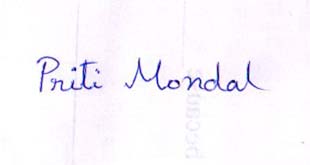 Priti Mondal